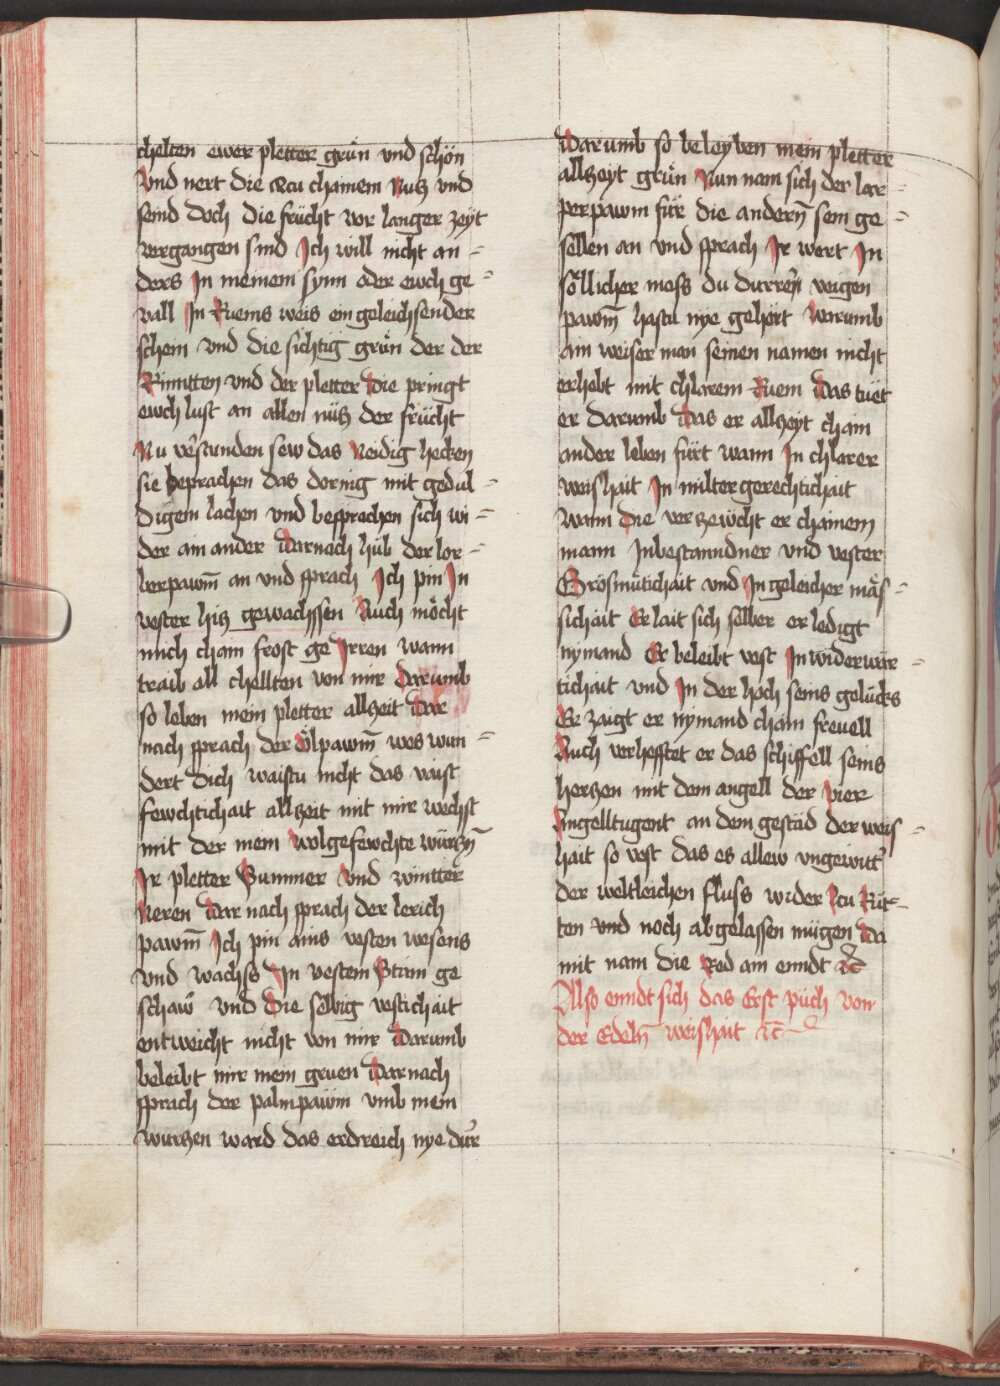 chelten ewer pletter grün vnd schön
Vnd nert die Zcu chainem Nutz vnd
seind doch die frücht vor langer zeyt
vergangen sind Ich will nicht an=
ders In meinem synn oder ewch ge=
vall In Ruems weis ein geleichsender
schein vnd die sichtig grün der der
Rinntten vnd der pletter Die pringt
ewch lust an allen nutz der frücht
Nu verstunden sew das Neidig hecken
sie besprachen das dornig mit gedul=
digem lachen vnd besprachen sich wi=
der ain ander Darnach hüb der lor=
berpawm̄ an vnd sprach Ich pin In
vester hitz gewachssen Auch möcht
mich chain frost ge Irren wann
traib all chellten von mir Darumb
so leben mein pletter allzeit Dar
nach sprach der ölpawm̄ wes wun=
dert dich waistu nicht das vaist
fewchtichait allzeit mit mir wechst
mit der mein wolgefewchte würtzn̄
Ir pletter Summer vnd wintter
Neren Dar nach sprach der lerich
pawm̄ Ich pin ains vesten wesens
vnd wachss In vestem Stam ge
schaw vnd die selbig vestichait
entweicht nicht von mir Darumb
beleibt mir mein gruen Darnach
sprach der palmpawm vmb mein
wurtzen ward das erdreich nye dürr
Darumb so beleyben mein pletter
allzeyt grün Nun nam sich der lor=
perpawm für die andern̄ sein ge=
sellen an vnd sprach Ir wert In
söllicher mass du durrer veigen
pawm̄ hastu nye gehört Warumb
ain weiser man seinen namen nicht
erhebt mit chlarem Ruem Das tüet
er darumb Das er allzeyt chain
ander leben fürt wann In chlarer
weishait In milter gerechtichait
wann die verzewcht er chainem
mann Inbestanndner vnd vester
Grösmütichait vnd In geleicher mäs=
sichait Er lait sich selber er ledigt
nymand Er beleibt vest In widerwär=
tichait vnd In der höch seins gelücks
Er zaigt er nymand chain freuell
Auch verhefftet er das schiffell seins
hertzen mit dem angell der vier
Angelltugent an dem gestad der weis=
hait so vest das es allew vngewitter
der weltleichen fluss wider Zcu Rüt=
ten vnd noch abgelassen mügen Da
mit nam die Red ain enndt etc̄
Also enndt sich das Erst püch von
der Edeln̄ weishait etc̄